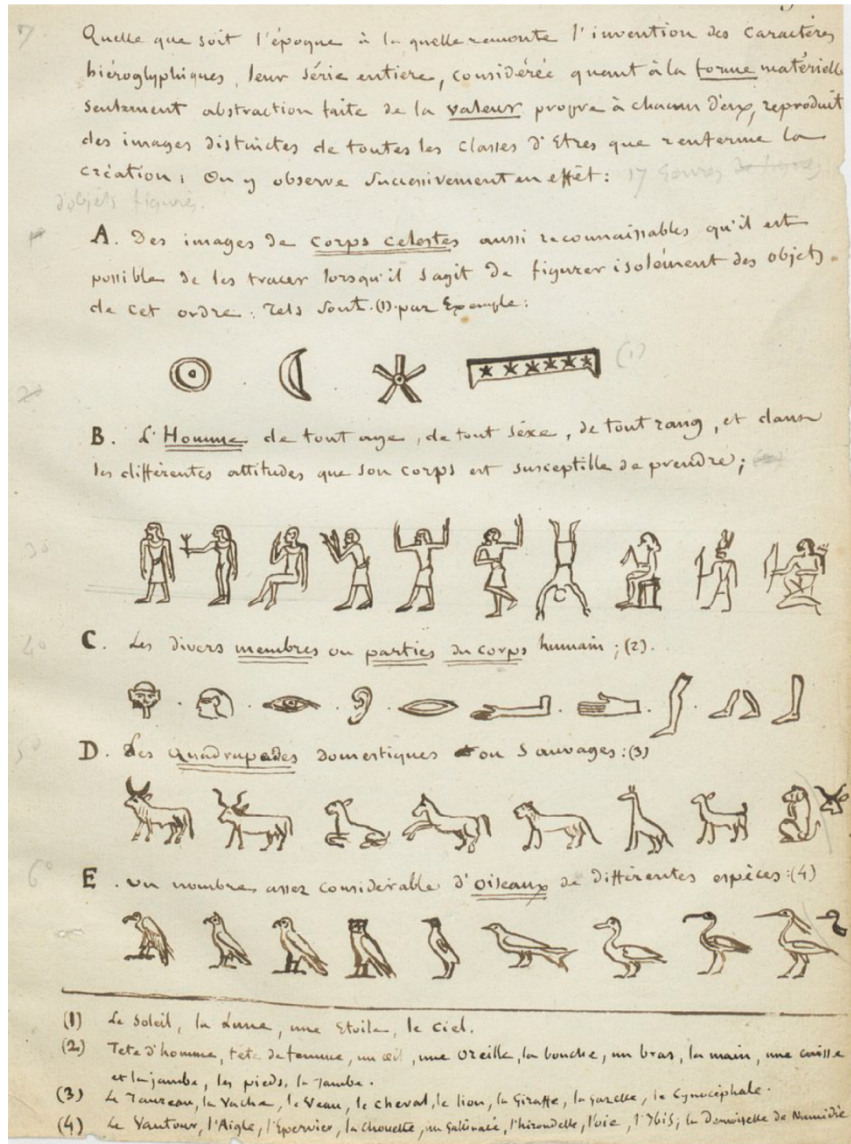 7
Quelle que soit l'époque à la quelle remonte l'invention des Caractères
hiéroglyphiques, leur série entiere, considérée quant à la forme matérielle
seulement abstraction faite de la valeur propre à chacun d'eux, reproduit
des images distinctes de toutes les classes d'Etres que renferme la
création; On y observe Successivement en effêt: 17 Genres de
d'objets figurés.
A. Des images de corps celestes aussi reconnaissables qu'il est
possible de les tracer lorsqu'il s'agit de figurer isolément des objets
de cet ordre. Tels sont. (1). par Exemple:
(1)
2°
B. L'Homme de tout age, de tout séxe, de tout rang, et dans
les différentes attitudes que son corps est susceptible de prendre;
3°
4°
C. Les divers membres ou parties du corps humain; (2).
5°
D. Les Quadrupedes domestiques ou Sauvages: (3)
6°
E. un nombre assez considérable d'oiseaux de différentes espèces: (4)
(1) Le Soleil, la Lune, une Etoile, le Ciel.
(2) Tete d'homme, tete de femme, un œil, une Oreille, la bouche, un bras, la main, une cuisse
et la jambe, les pieds, la Jambe.
(3) Le Taureau, la Vache, le Veau, le cheval, le lion, la Giraffe, la Gazelle, le Cynocéphale.
(4) Le Vautour, l'Aigle, l'Epervier, la chouette, un Gallinacé, l'hirondelle, l'oie, l'Ibis, la Demoiselle de Numidie